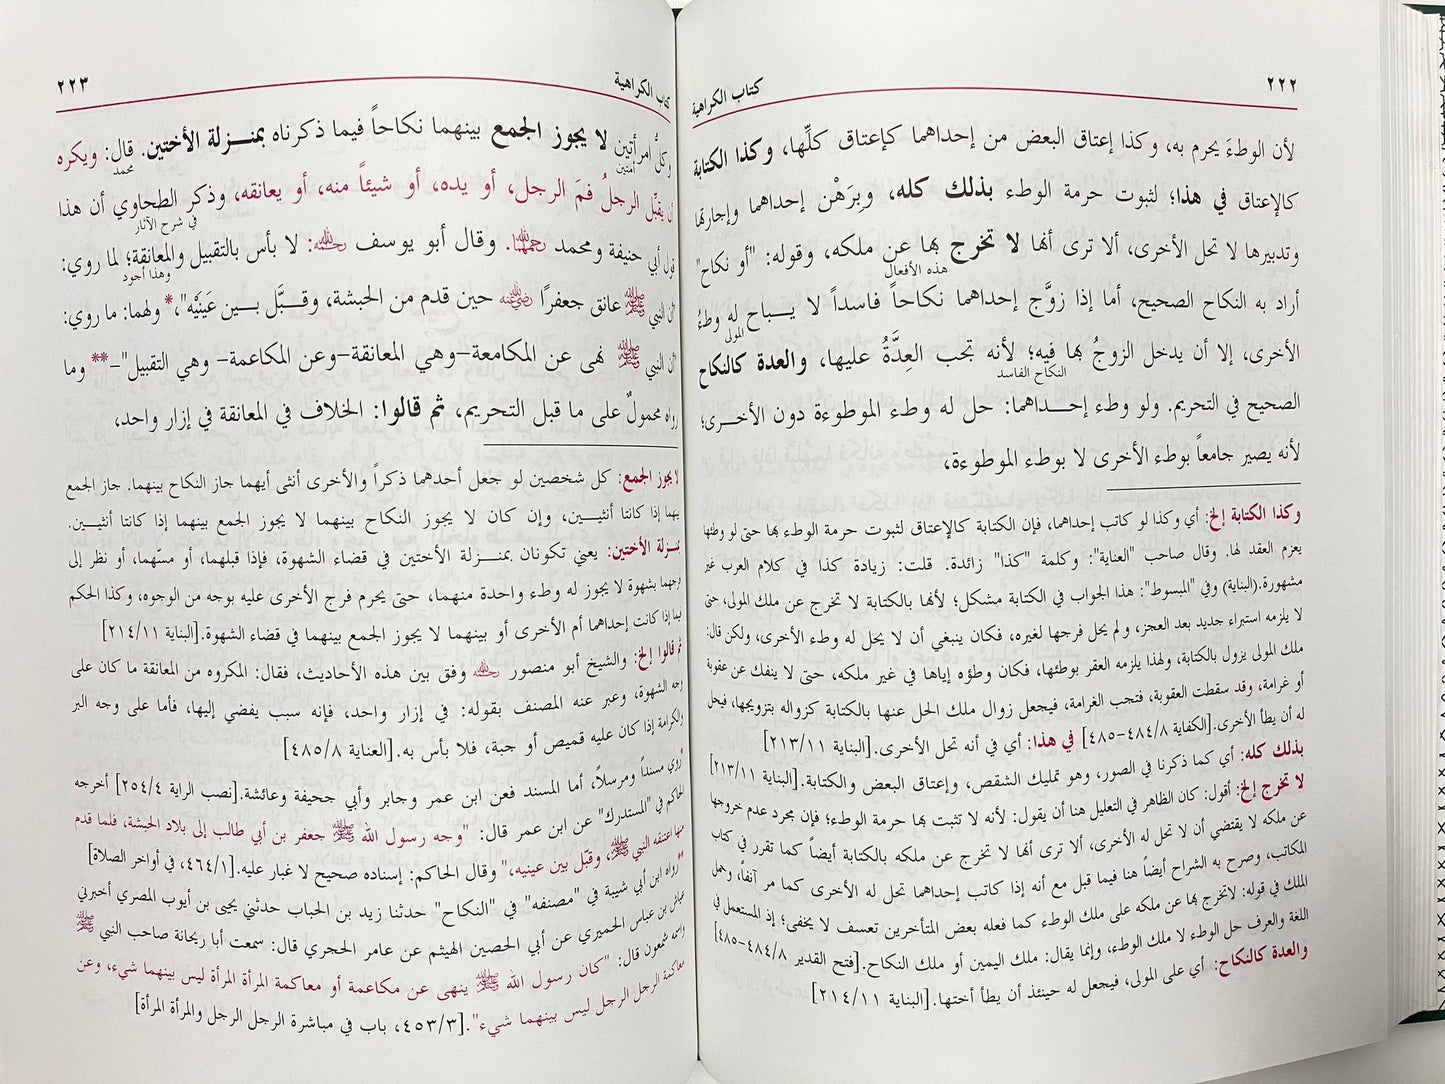 كتاب الكراهية ٢٢٢
لأن الوطءَ يحرم به، وكذا إعتاق البعض من إحداهما كإعتاق كلِّها، وكذا الكتابة
كالإعتاق في هذا؛ لثبوت حرمة الوطء بذلك كله، وبِرَهْن إحداهما وإجارتها
وتدبيرها لا تحل الأخرى، ألا ترى أنها لا تخرج بها عن ملكه، وقوله: "أو نكاح"
هذه الأفعال
أراد به النكاح الصحيح، أما إذا زوَّج إحداهما نكاحاً فاسداً لا يباح له وطءُ
المولى
الأخرى، إلا أن يدخل الزوجُ بها فيه؛ لأنه تجب العِدَّةُ عليها، والعدة كالنكاح
النكاح الفاسد
الصحيح في التحريم. ولو وطء إحداهما: حل له وطء الموطوءة دون الأخرى؛
لأنه يصير جامعاً بوطء الأخرى لا بوطء الموطوءة،
وكذا الكتابة إلخ: أي وكذا لو كاتب إحداهما، فإن الكتابة كالإعتاق لثبوت حرمة الوطء بها حتى لو وطئها
يعزم العقد لها. وقال صاحب "العناية": وكلمة "كذا" زائدة. قلت: زيادة كذا في كلام العرب غير
مشهورة.(البناية) وفي "المبسوط": هذا الجواب في الكتابة مشكل؛ لأنها بالكتابة لا تخرج عن ملك المولى، حتى
لا يلزمه استبراء جديد بعد العجز، ولم يحل فرجها لغيره، فكان ينبغي أن لا يحل له وطء الأخرى، ولكن قال:
ملك المولى يزول بالكتابة، ولهذا يلزمه العقر بوطئها، فكان وطؤه إياها في غير ملكه، حتى لا ينفك عن عقوبة
أو غرامة، وقد سقطت العقوبة، فتجب الغرامة، فيجعل زوال ملك الحل عنها بالكتابة كزواله بتزويجها، فيحل
له أن يطأ الأخرى.[الكفاية ٤٨٤/٨-٤٨٥] في هذا: أي في أنه تحل الأخرى.[البناية ٢١٣/١١]
بذلك كله: أي كما ذكرنا في الصور، وهو تمليك الشقص، وإعتاق البعض والكتابة.[البناية ٢١٣/١١]
لا تخرج إلخ: أقول: كان الظاهر في التعليل هنا أن يقول: لأنه لا تثبت بها حرمة الوطء؛ فإن مجرد عدم خروجها
عن ملكه لا يقتضي أن لا تحل له الأخرى، ألا ترى أنها لا تخرج عن ملكه بالكتابة أيضاً كما تقرر في كتاب
المكاتب، وصرح به الشراح أيضاً هنا فيما قبل مع أنه إذا كاتب إحداهما تحل له الأخرى كما مر آنفاً، وحمل
الملك في قوله: لاتخرج بها عن ملكه على ملك الوطء كما فعله بعض المتأخرين تعسف لا يخفى؛ إذ المستعمل في
اللغة والعرف حل الوطء لا ملك الوطء، وإنما يقال: ملك اليمين أو ملك النكاح.[فتح القدير ٤٨٤/٨-٤٨٥]
والعدة كالنكاح: أي على المولى، فيجعل له حينئذ أن يطأ أختها.[البناية ٢١٤/١١]
كتاب الكراهية ٢٢٣
وكلُّ امرأتين لا يجوز الجمع بينهما نكاحاً فيما ذكرناه بمنزلة الأختين. قال: ويكره
أمتين محمد
أن يقبِّل الرجلُ فمَ الرجل، أو يده، أو شيئاً منه، أو يعانقه، وذكر الطحاوي أن هذا
في شرح الآثار
قول أبي حنيفة ومحمد رحمهما الله. وقال أبو يوسف رحمه الله: لا بأس بالتقبيل والمعانقة؛ لما روي:
وهذا أجود
"أن النبي ﷺ عانق جعفرًا رضي الله عنه حين قدم من الحبشة، وقبَّل بين عَينَيْه"،* ولهما: ما روي:
"أن النبي ﷺ نهى عن المكامعة–وهي المعانقة–وعن المكاعمة– وهي التقبيل"–** وما
رواه محمولٌ على ما قبل التحريم، ثم قالوا: الخلاف في المعانقة في إزار واحد،
لا يجوز الجمع: كل شخصين لو جعل أحدهما ذكراً والأخرى أنثى أيهما جاز النكاح بينهما. جاز الجمع
بينهما إذا كانتا أنثيين، وإن كان لا يجوز النكاح بينهما لا يجوز الجمع بينهما إذا كانتا أنثيين.
بمنزلة الأختين: يعني تكونان بمنزلة الأختين في قضاء الشهوة، فإذا قبلهما، أو مسّهما، أو نظر إلى
فرجهما بشهوة لا يجوز له وطء واحدة منهما، حتى يحرم فرج الأخرى عليه بوجه من الوجوه، وكذا الحكم
فيما إذا كانت إحداهما أم الأخرى أو بينهما لا يجوز الجمع بينهما في قضاء الشهوة.[البناية ٢١٤/١١]
ثم قالوا إلخ: والشيخ أبو منصور رحمه الله وفق بين هذه الأحاديث، فقال: المكروه من المعانقة ما كان على
وجه الشهوة، وعبر عنه المصنف بقوله: في إزار واحد، فإنه سبب يفضي إليها، فأما على وجه البر
والكرامة إذا كان عليه قميص أو جبة، فلا بأس به.[العناية ٤٨٥/٨]
روي مسنداً ومرسلاً، أما المسند فعن ابن عمر وجابر وأبي جحيفة وعائشة.[نصب الراية ٢٥٤/٤] أخرجه
الحاكم في "المستدرك" عن ابن عمر قال: "وجه رسول الله ﷺ جعفر بن أبي طالب إلى بلاد الحبشة، فلما قدم
منها اعتنقه النبي ﷺ، وقبّل بين عينيه،" وقال الحاكم: إسناده صحيح لا غبار عليه.[٤٦٤/١، في أواخر الصلاة]
**رواه ابن أبي شيبة في "مصنفه" في "النكاح" حدثنا زيد بن الحباب حدثني يحيى بن أيوب المصري أخبرني
عياش بن عباس الحميري عن أبي الحصين الهيثم عن عامر الحجري قال: سمعت أبا ريحانة صاحب النبي ﷺ
واسمه شمعون قال: "كان رسول الله ﷺ ينهى عن مكاعمة أو معاكمة المرأة المرأة ليس بينهما شيء، وعن
معاكمة الرجل الرجل ليس بينهما شيء".[٤٥٣/٣، باب في مباشرة الرجل الرجل والمرأة المرأة]